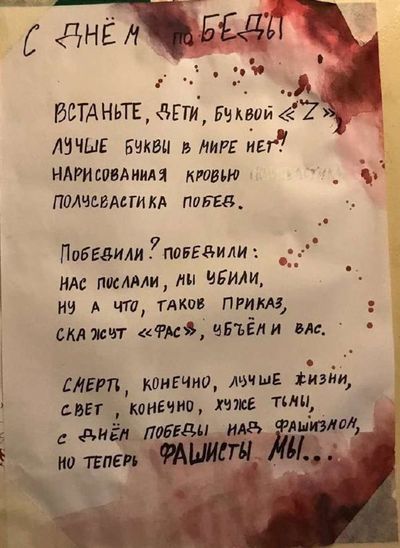 С ДНЁМ поБЕДЫ
ВСТАНЬТЕ, ДЕТИ, БУКВОЙ «Z»,
ЛУЧШЕ БУКВЫ В МИРЕ НЕТ!
НАРИСОВАННАЯ КРОВЬЮ
ПОЛУСВАСТИКА ПОБЕД.
ПОБЕДИЛИ? ПОБЕДИЛИ:
НАС ПОСЛАЛИ, МЫ УБИЛИ,
НУ А ЧТО, ТАКОВ ПРИКАЗ,
СКАЖУТ «ФАС», УБЪЁМ И ВАС.
СМЕРТЬ, КОНЕЧНО, ЛУЧШЕ ЖИЗНИ,
СВЕТ, КОНЕЧНО, ХУЖЕ ТЬМЫ,
С ДНЁМ ПОБЕДЫ НАД ФАШИЗМОМ,
НО ТЕПЕРЬ ФАШИСТЫ МЫ...